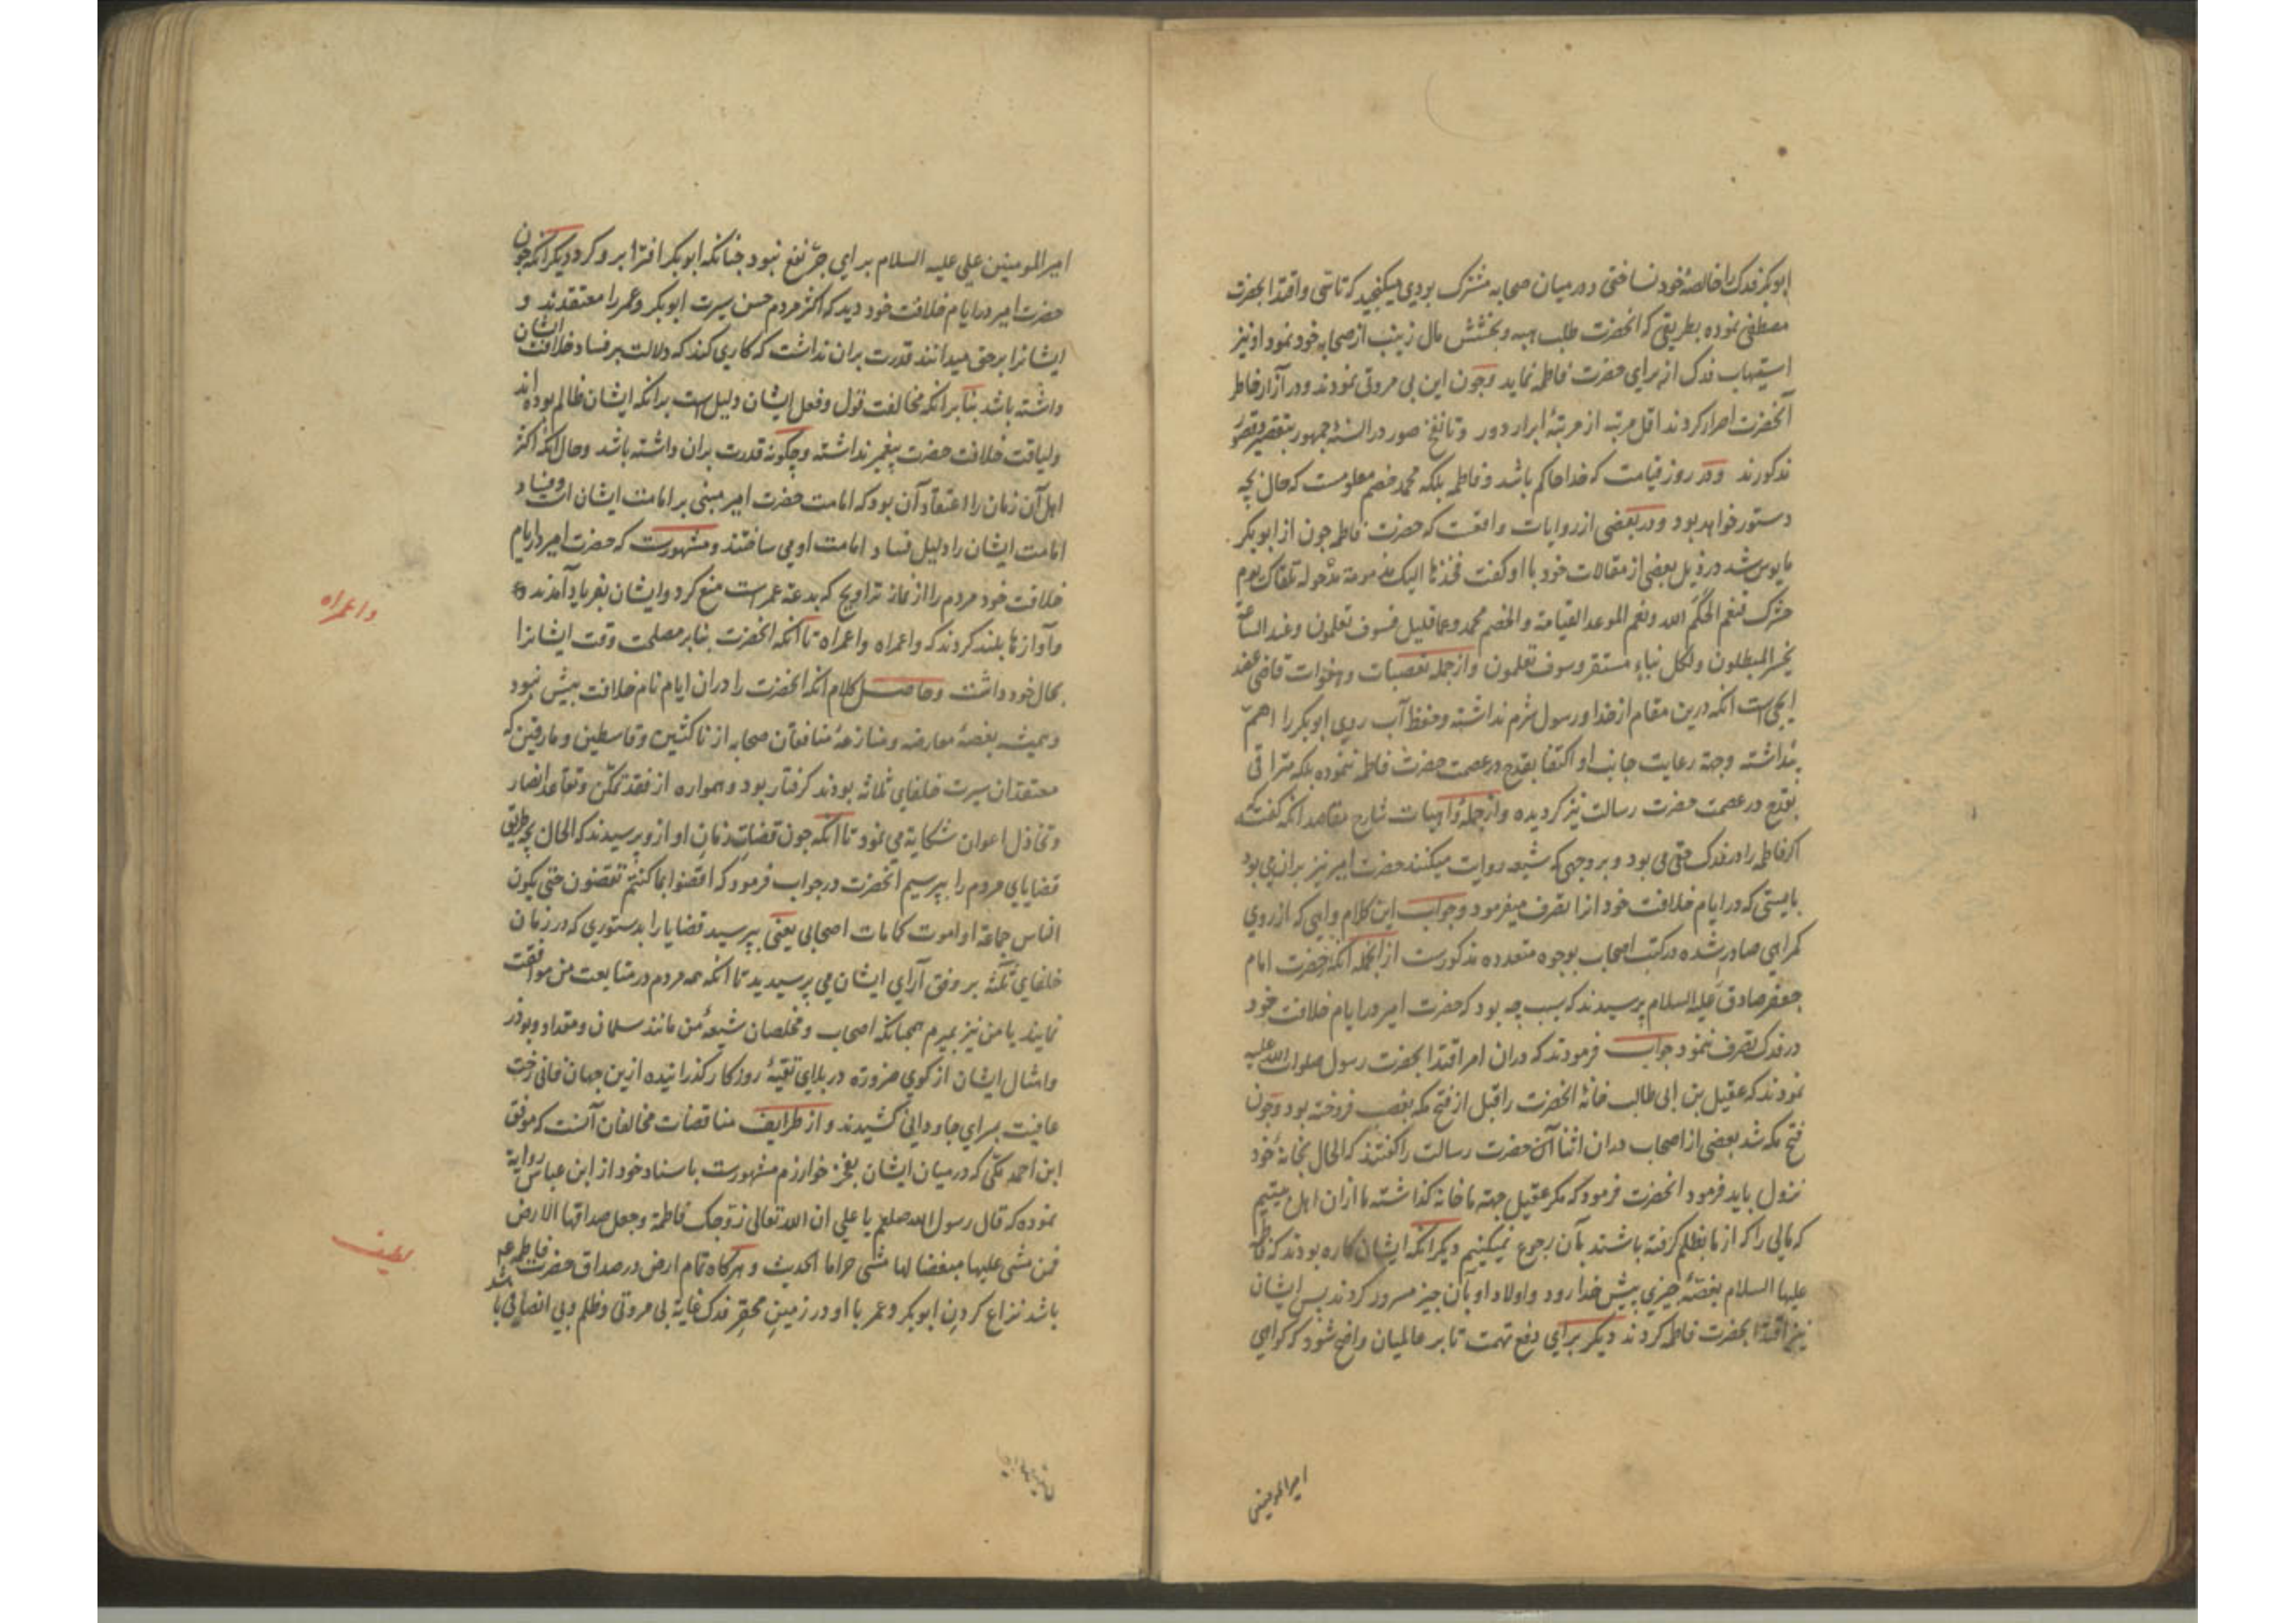 ابوبکر فدک را خالصهٔ خود نساختی و در میان صحابه مشترک بودی میکنجید که تاسی و اقتدا بحضرت
مصطفی نموده بطریقی که انحضرت طلب هبه و بخشش مال زینب از صحابه خود نمود او نیز
استیهاب فدک از برای حضرت فاطمه نماید و چون این بی مروتی نمودند و در آزار خاطر
آنحضرت اصرار کردند اقل مرتبه از مرتبهٔ ابرار دور و تا نفخ صور در السنهٔ جمهور بتقصیر و قصور
مذکورند و در روز قیامت که خدا حاکم باشد و فاطمه بلکه محمد خصم معلومست که حال بچه
دستور خواهد بود و در بعضی از روایات واقعست که حضرت فاطمه چون از ابوبکر
مایوس شد در ذیل بعضی از مقالات خود با او کفت فخذها الیک مزمومة مرحولة تلقاک یوم
حشرک فنعم الحکم الله و نعم الموعد القیامة و الخصم محمد و عما قلیل فسوف تعلمون و عند الساعة
یخسر المبطلون و لکل نباء مستقر و سوف تعلمون و از جمله تعصبات و هفوات قاضی عضد
ایجی است انکه درین مقام از خدا و رسول شرم نداشته و حفظ آب روی ابوبکر را اهم
پنداشته وجهة رعایت جانب او اکتفا بقدح در عصمت حضرت فاطمه ننموده بلکه مترا قی
بقدح در عصمت حضرت رسالت نیز کردیده و از جملهٔ واهیات شارح مقاصد انکه کفته که
اکر فاطمه را در فدک حقی می بود و بر وجهی که شیعه روایت میکنند حضرت امیر نیز بران می بود
بایستی که در ایام خلافت خود انرا تصرف میفرمود و جواب این کلام واهی که از روی
کمراهی صادر شده در کتب اصحاب بوجوه متعدده مذکورست از انجمله انکه حضرت امام
جعفر صادق علیه السلام پرسیدند که سبب چه بود که حضرت امیر در ایام خلافت خود
در فدک تصرف ننمود جواب فرمودند که دران امر اقتدا بحضرت رسول صلوات الله علیه
نمودند که عقیل بن ابی طالب خانهٔ انحضرت را قبل از فتح مکه بغصب فروخته بود و چون
فتح مکه شد بعضی از اصحاب دران اثنا آن حضرت رسالت را کفتند که الحال بخانهٔ خود
نزول باید فرمود انحضرت فرمود که مکر عقیل جهة ما خانه کذاشته ما ازان اهل بیتیم
که مالی را که از ما بظلم کرفته باشند بآن رجوع نمیکنیم دیکر انکه ایشان کاره بودند که فاطمه
علیها السلام بغصهٔ چیزی پیش خدا رود و اولاد او بآن چیز مسرور کردند پس ایشان
نیز اقتدا بحضرت فاطمه کردند دیکر برای دفع تهمت تا بر عالمیان واضح شود که کواهی
امیرالمومنین
امیرالمومنین علی علیه السلام برای جر نفع نبود چنانکه ابوبکر افترا برو کرد دیکر انکه چون
حضرت امیر در ایام خلافت خود دید که اکثر مردم حسن سیرت ابوبکر و عمر را معتقدند و
ایشانرا بر حق میدانند قدرت بران نداشت که کاری کند که دلالت بر فساد خلافت ایشان
داشته باشد بنا بر انکه مخالفت قول و فعل ایشان دلیل است بدانکه ایشان ظالم بوده اند
و لیاقت خلافت حضرت پیغمبر نداشته و چکونه قدرت بران داشته باشد و حال انکه اکثر
اهل آن زمان را اعتقاد آن بود که امامت حضرت امیر مبنی بر امامت ایشان است و فساد
امامت ایشان را دلیل فساد امامت او می ساختند و مشهورست که حضرت امیر در ایام
خلافت خود مردم را از نماز تراویح که بدعة عمر است منع کرد و ایشان بفریاد آمدند و
و آوازها بلند کردند که واعمراه واعمراه تا آنکه انحضرت بنا بر مصلحت وقت ایشانرا
بحال خود داشت و حاصل کلام انکه انحضرت را دران ایام نام خلافت بیش نبود
و همیشه بغصهٔ معارضه و منازعهٔ منافقان صحابه از ناکثین و قاسطین و مارقین که
معتقدان سیرت خلفای ثلاثه بودند کرفتار بود و همواره از فقد تمکن و تقاعد انصار
و تخاذل اعوان شکایه می نمود تا آنکه چون قضات زمان او ازو پرسیدند که الحال بچه طریق
قضایای مردم را بپرسیم انحضرت در جواب فرمود که اقضوا بما کنتم تقضون حتی یکون
الناس جماعة او اموت کما مات اصحابی یعنی بپرسید قضایا را بدستوری که در زمان
خلفای ثلثه بر وفق آرای ایشان می پرسیدید تا انکه همه مردم در متابعت من موافقت
نمایند یا من نیز بمیرم همچنانکه اصحاب و مخلصان شیعهٔ من مانند سلمان و مقداد و بوذر
و امثال ایشان از کوی ضرورة در بلای تقیهٔ روزکار کذرانیده ازین جهان فانی رخت
عافیت بسرای جاودانی کشیدند و از طرایف مناقضات مخالفان آنست که موفق
ابن احمد مکی که در میان ایشان بفخر خوارزم مشهورست باسناد خود از ابن عباس روایة
نموده که قال رسول الله صلعم یا علی ان الله تعالی زوجک فاطمة و جعل صداقها الارض
فمن مشی علیها مبغضا لها مشی حراما الحدیث و هرکاه تمام ارض در صداق حضرت فاطمه عم
باشد نزاع کردن ابوبکر و عمر با او در زمین محقر فدک غایة بی مروتی و ظلم و بی انصافی باشد
واعمراه
لطیف